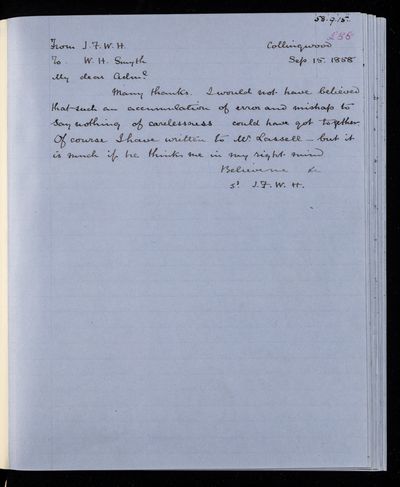 58.9.15.
258
From J.F.W.H. Collingwood
To W.H. Smyth Sep 15. 1858
My dear Adm^l
Many thanks. I would not have believed
that such an accumulation of error and mishap to
say nothing of carelessness could have got together
Of course I have written to Mr Lassell – but it
is much if he thinks me in my right mind
Believe me &c
s^d J.F.W.H.